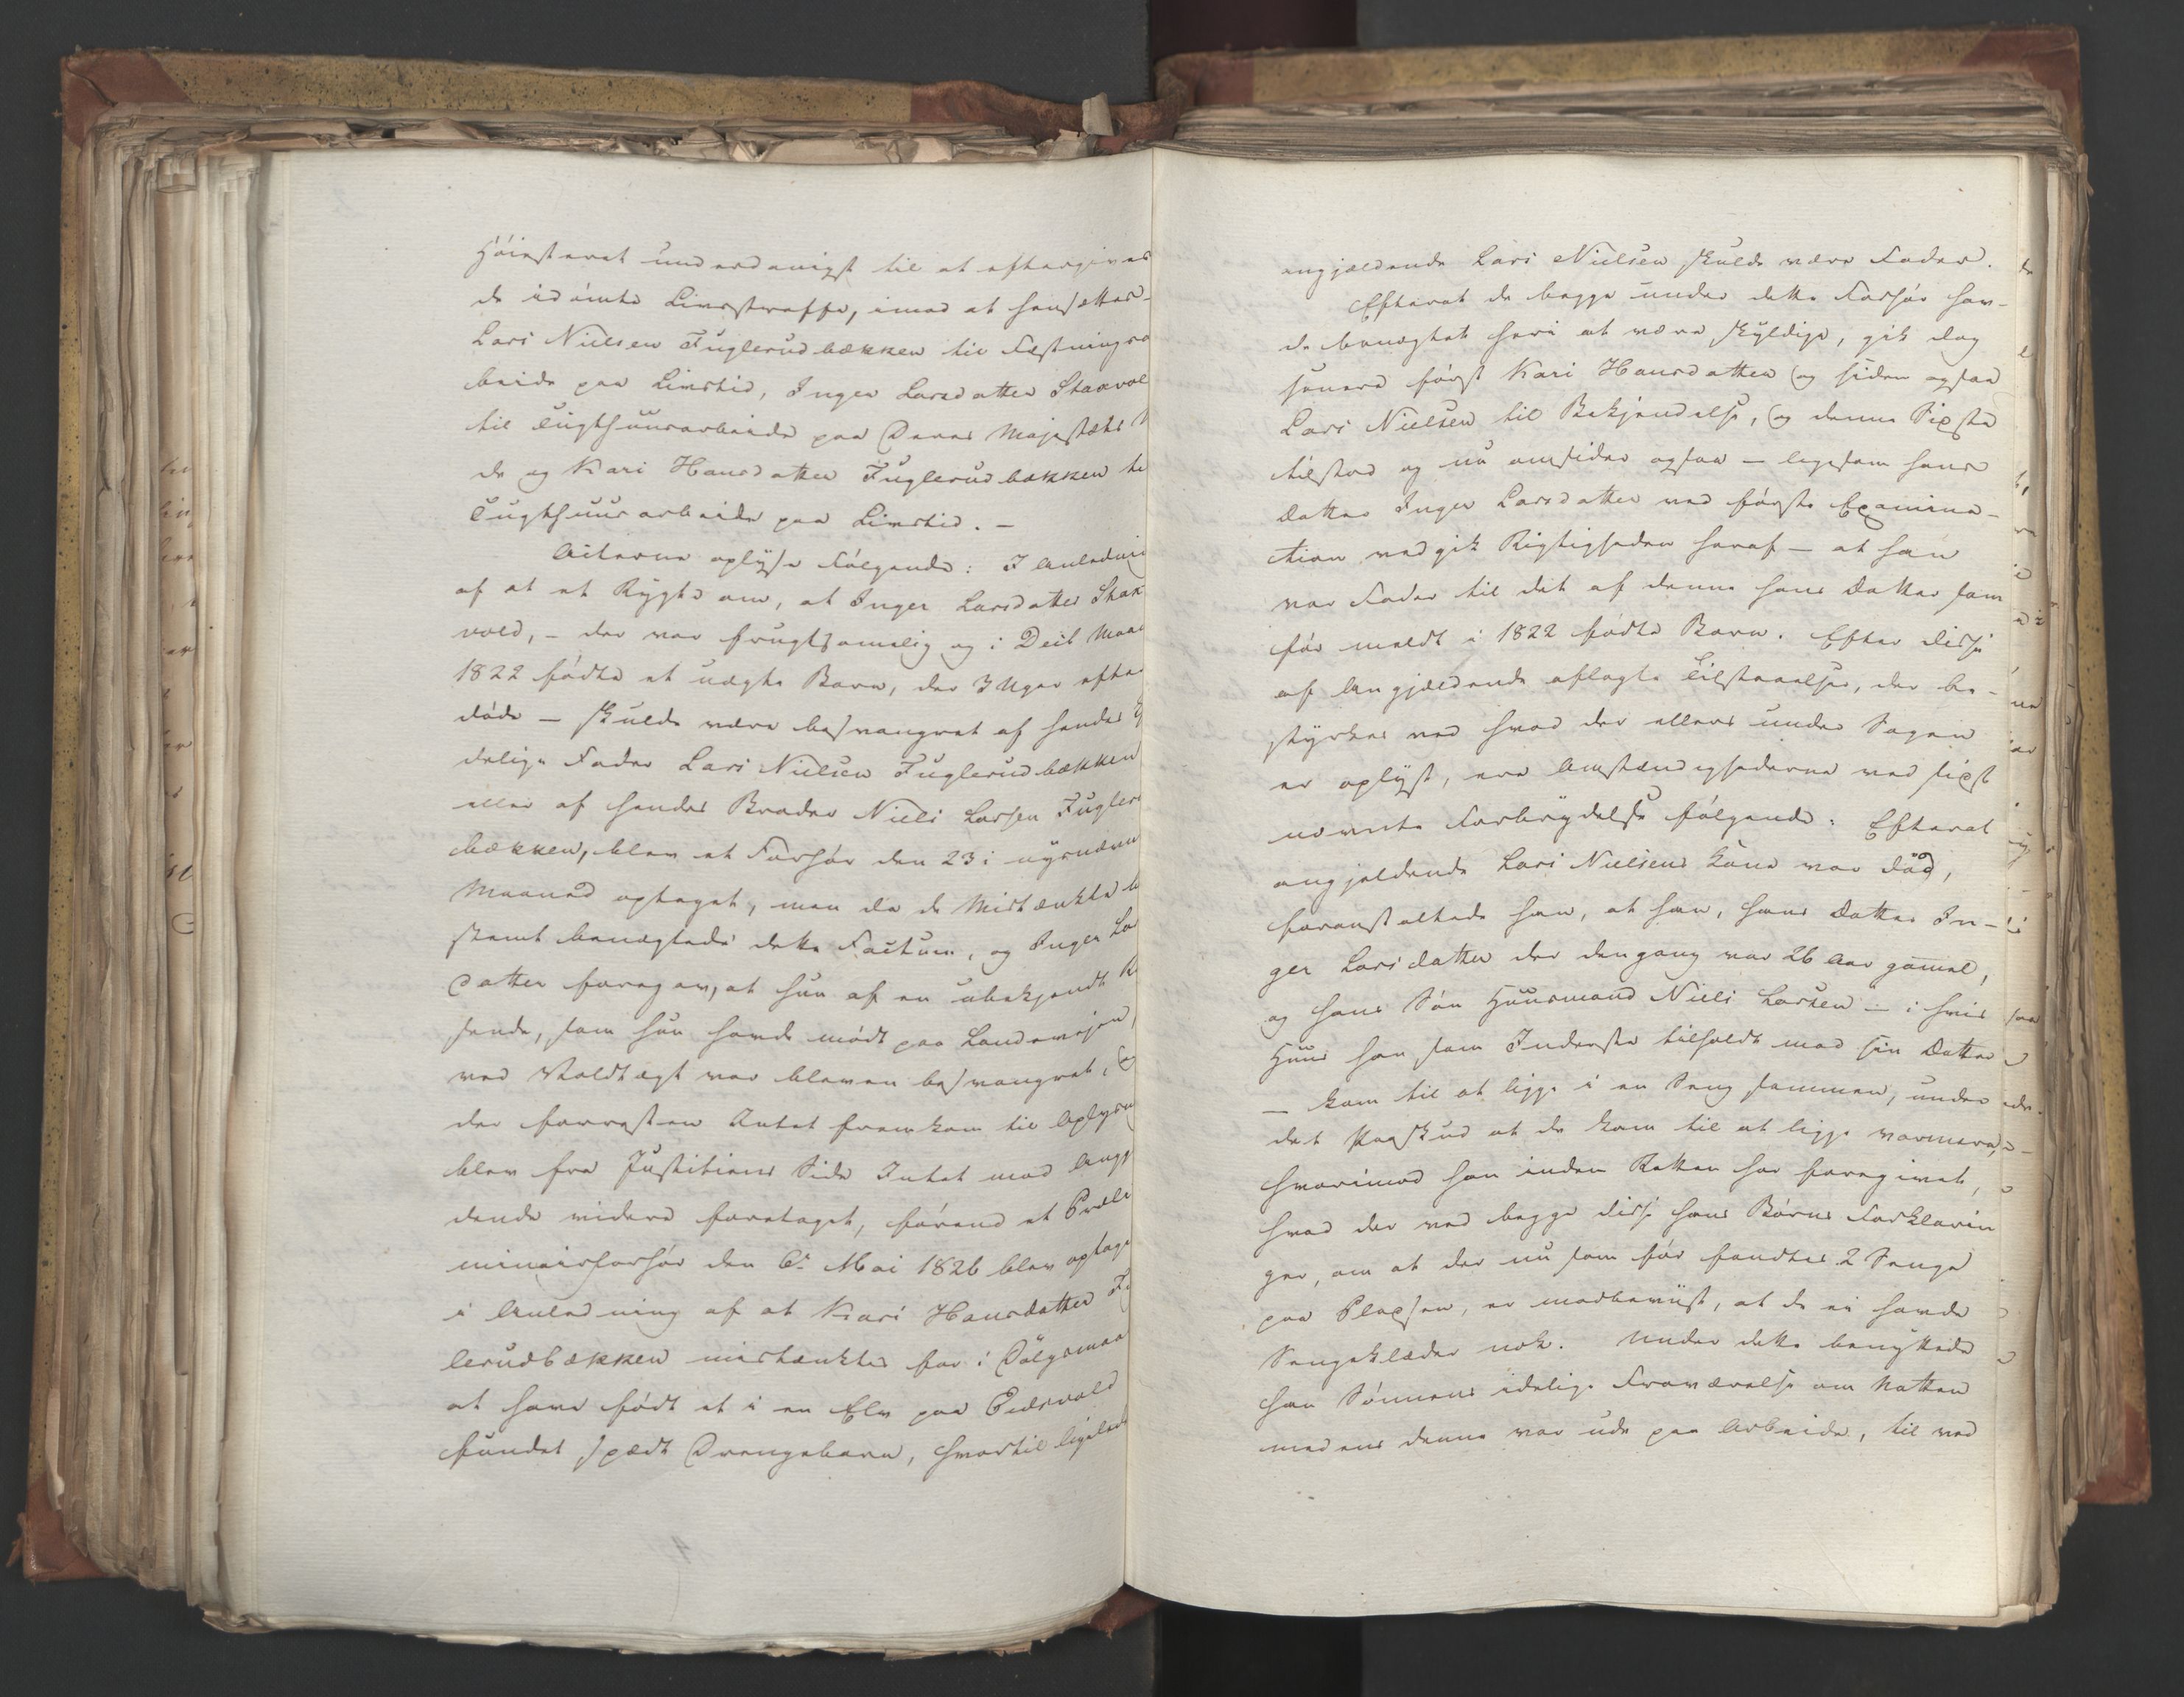 Höiesteret underdanigst til at eftergives
de idömte Livsstraffe, imod at hensættes
Lars Nielsen Fuglerudbækken til Fæstningsa
beide paa Livstid, Inger Larsdatter Staxvol
til Tugthuusarbeide paa Deres Majestæts
de og Kari Hansdatter Fuglerudbækken ti
Tugthuusarbeide paa Livstid. –
Acterne oplyse Fölgende: I Anledni
af at et Rygte om, at Inger Larsdatter Stax
vold, – der var frugtsommelig og i Decb Maa
1822 födte et uægte Barn, der 3 Uger efte
döde – skulde være besvangret af hendes
delige Fader Lars Nielsen Fuglerudbækken
eller af hendes Broder Niels Larsen Fugler
bækken, blev et Forhör den 23 i nysnævn
Maaned optaget, men da de Mistænkte
stemt benægtede dette Factum, og Inger La
datter foregav, at hun af en ubekjendt R
sende, som hun havde mödt paa Landeveien,
ved Voldtægt var bleven besvangret, og
der forresten Intet fremkom til Oplysn
blev fra Justitiens Side Intet mod Angj
dende videre foretaget, förend et Præli
minairforhör den 6te Mai 1826 blev optage
i Anledning af at Kari Hansdatter Fu
lerudbækken mistænktes for i Dölgsmaa
at have födt et i en Elv paa Eidsvold
fundet spædt Drengebarn, hvortil ligeled
angjældende Lars Nielsen skulde være Fader.
Efterat de begge under dette Forhör hav-
de benægtet heri at være skyldige, gik dog
senere först Kari Hansdatter og siden ogsaa
Lars Nielsen til Bekjendelse, og denne Sidste
tilstod og nu omsider ogsaa – ligesom hans
Datter Inger Larsdatter ved förste Examina-
tion vedgik Rigtigheden heraf – at han
var Fader til det af denne hans Datter som
för meldt i 1822 födte Barn. Efter disse
af Angjældende aflagte Tilstaaelser, der be-
styrkes ved hvad der ellers under Sagen
er oplyst, ere Omstændighederne ved sidst
nævnte Forbrydelse fölgende: Efterat
angjeldende Lars Nielsens Kone var död,
foranstaltede han, at han, hans Datter In-
ger Larsdatter der dengang var 26 Aar gamel,
og hans Sön Huusmand Niels Larsen – i hvis
Huus han som Inderste tilholdt med sin Datter
– kom til at ligge i en Seng sammen, under
det Paaskud at de kom til at ligge varmere,
hvorimod han inden Retten har foregivet,
hvad der ved begge disse hans Börns Forklarin
ger, om at der nu som för fandtes 2 Senge
paa Pladsen, er modbeviist, at de ei havde
Sengeklæder nok. Under dette benyttede
han Sönnens idelige Fraværelse om Natten
medens denne var ude paa Arbeide, til ved